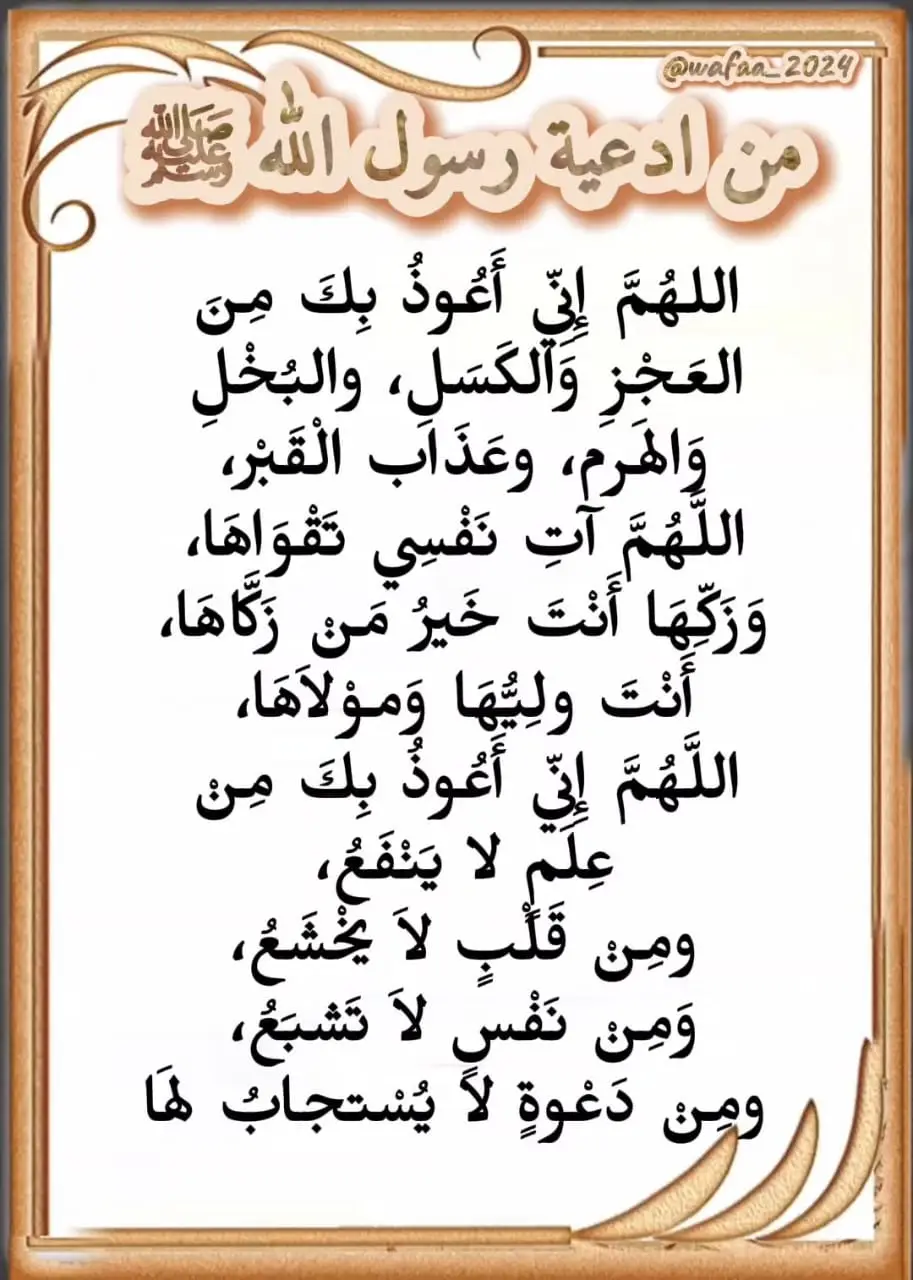 @wafaa_2024
من ادعية رسول الله ﷺ
اللهُمَّ إِنِّي أَعُوذُ بِكَ مِنَ
العَجْزِ وَالكَسَلِ، والبُخْلِ
وَالهَرمِ، وعَذَاب الْقَبْر،
اللَّهُمَّ آتِ نَفْسِي تَقْوَاهَا،
وَزَكِّهَا أَنْتَ خَيرُ مَنْ زَكَّاهَا،
أَنْتَ ولِيُّهَا وَموْلاَهَا،
اللَّهُمَّ إِنِّي أَعُوذُ بِكَ مِنْ
عِلمٍ لا يَنْفَعُ،
ومِنْ قَلْبٍ لاَ يخْشَعُ،
وَمِنْ نَفْسٍ لاَ تَشبَعُ،
ومِنْ دَعْوةٍ لا يُسْتجابُ لهَا